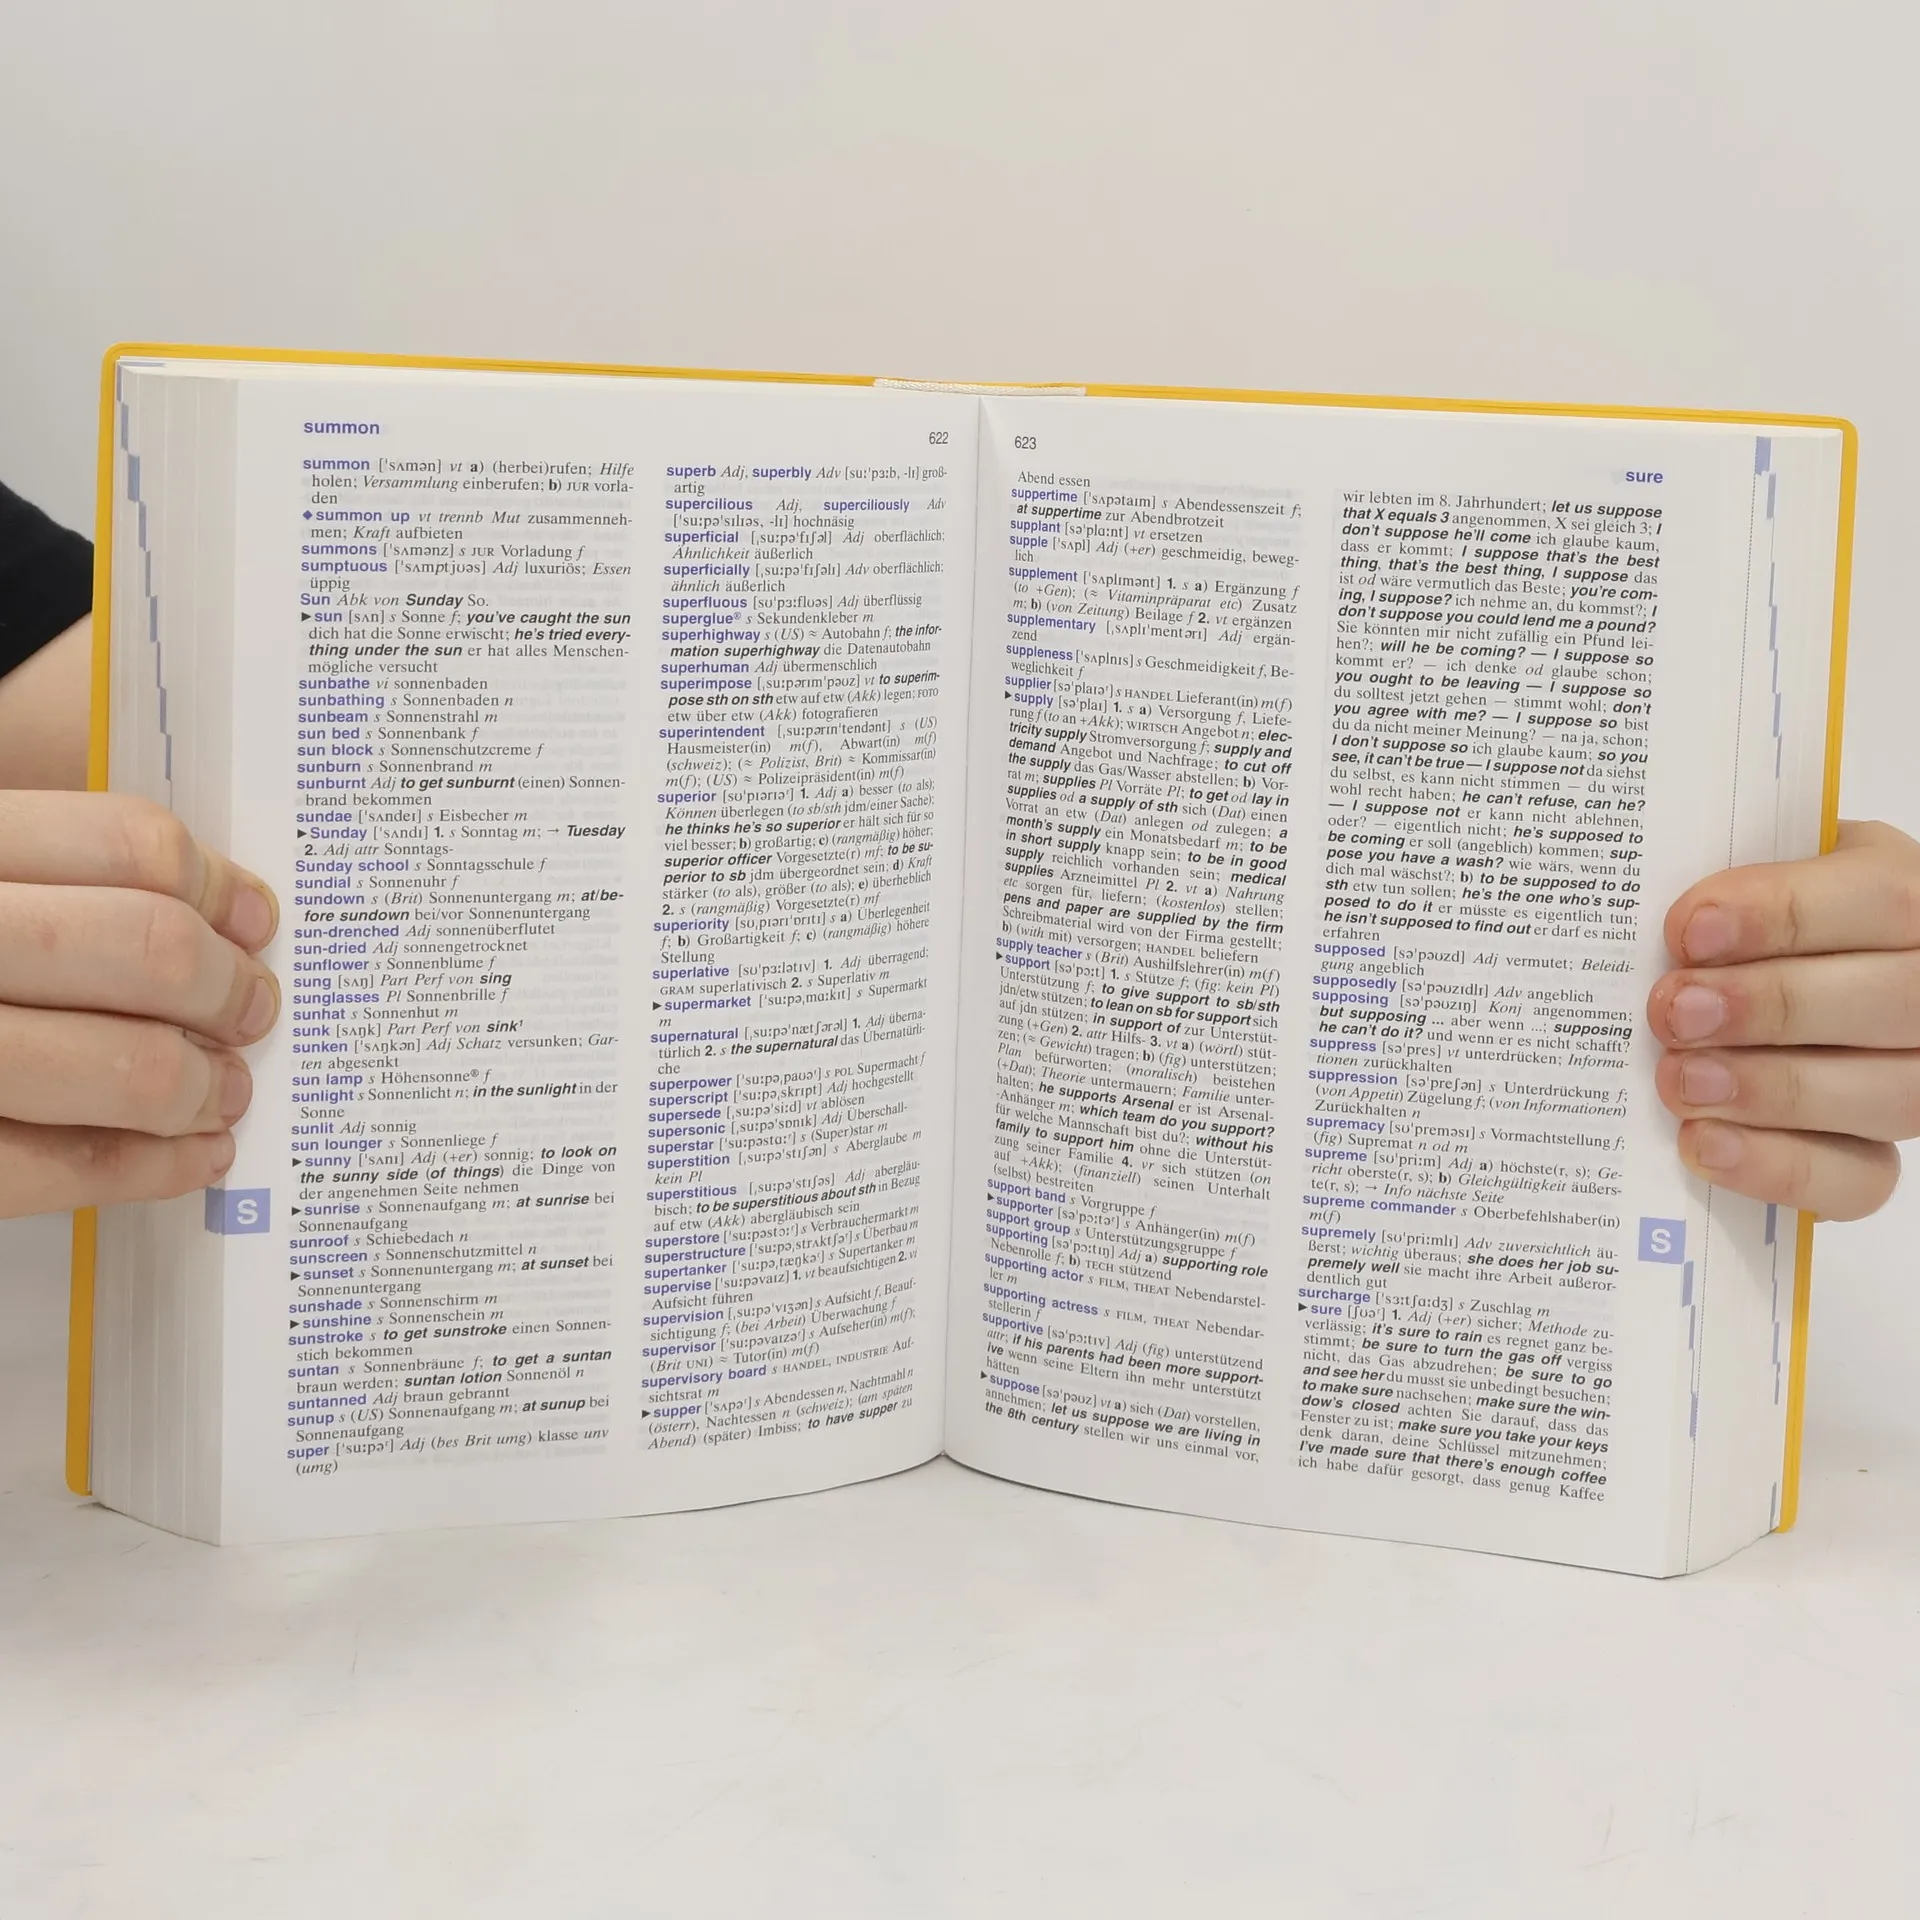 summon
622
summon ['sʌmən] vt a) (herbei)rufen; Hilfe
holen; Versammlung einberufen; b) JUR vorla-
den
◆summon up vt trennb Mut zusammenneh-
men; Kraft aufbieten
summons ['sʌmənz] s JUR Vorladung f
sumptuous ['sʌmptjʊəs] Adj luxuriös; Essen
üppig
Sun Abk von Sunday So.
▶sun [sʌn] s Sonne f; you've caught the sun
dich hat die Sonne erwischt; he's tried every-
thing under the sun er hat alles Menschen-
mögliche versucht
sunbathe vi sonnenbaden
sunbathing s Sonnenbaden n
sunbeam s Sonnenstrahl m
sun bed s Sonnenbank f
sun block s Sonnenschutzcreme f
sunburn s Sonnenbrand m
sunburnt Adj to get sunburnt (einen) Sonnen-
brand bekommen
sundae ['sʌndeɪ] s Eisbecher m
▶Sunday ['sʌndɪ] 1. s Sonntag m; → Tuesday
2. Adj attr Sonntags-
Sunday school s Sonntagsschule f
sundial s Sonnenuhr f
sundown s (Brit) Sonnenuntergang m; at/be-
fore sundown bei/vor Sonnenuntergang
sun-drenched Adj sonnenüberflutet
sun-dried Adj sonnengetrocknet
sunflower s Sonnenblume f
sung [sʌŋ] Part Perf von sing
sunglasses Pl Sonnenbrille f
sunhat s Sonnenhut m
sunk [sʌŋk] Part Perf von sink¹
sunken ['sʌŋkən] Adj Schatz versunken; Gar-
ten abgesenkt
sun lamp s Höhensonne® f
sunlight s Sonnenlicht n; in the sunlight in der
Sonne
sunlit Adj sonnig
sun lounger s Sonnenliege f
▶sunny ['sʌnɪ] Adj (+er) sonnig; to look on
the sunny side (of things) die Dinge von
der angenehmen Seite nehmen
▶sunrise s Sonnenaufgang m; at sunrise bei
Sonnenaufgang
sunroof s Schiebedach n
sunscreen s Sonnenschutzmittel n
▶sunset s Sonnenuntergang m; at sunset bei
Sonnenuntergang
sunshade s Sonnenschirm m
▶sunshine s Sonnenschein m
sunstroke s to get sunstroke einen Sonnen-
stich bekommen
suntan s Sonnenbräune f; to get a suntan
braun werden; suntan lotion Sonnenöl n
suntanned Adj braun gebrannt
sunup s (US) Sonnenaufgang m; at sunup bei
Sonnenaufgang
super ['suːpəʳ] Adj (bes Brit umg) klasse unv
(umg)
S
superb Adj, superbly Adv [suː'pɜːb, -lɪ] groß-
artig
supercilious Adj, superciliously Adv
['suːpə'sɪlɪəs, -lɪ] hochnäsig
superficial [ˌsuːpə'fɪʃəl] Adj oberflächlich;
Ähnlichkeit äußerlich
superficially [ˌsuːpə'fɪʃəlɪ] Adv oberflächlich;
ähnlich äußerlich
superfluous [sʊ'pɜːflʊəs] Adj überflüssig
superglue® s Sekundenkleber m
superhighway s (US) ≈ Autobahn f; the infor-
mation superhighway die Datenautobahn
superhuman Adj übermenschlich
superimpose [ˌsuːpərɪm'pəʊz] vt to superim-
pose sth on sth etw auf etw (Akk) legen; FOTO
etw über etw (Akk) fotografieren
superintendent [ˌsuːpərɪn'tendənt] s (US)
Hausmeister(in) m(f), Abwart(in) m(f)
(schweiz); (≈ Polizist, Brit) ≈ Kommissar(in)
m(f); (US) ≈ Polizeipräsident(in) m(f)
superior [sʊ'pɪərɪəʳ] 1. Adj a) besser (to als);
Können überlegen (to sb/sth jdm/einer Sache);
he thinks he's so superior er hält sich für so
viel besser; b) großartig; c) (rangmäßig) höher;
superior officer Vorgesetzte(r) mf; to be su-
perior to sb jdm übergeordnet sein; d) Kraft
stärker (to als), größer (to als); e) überheblich
2. s (rangmäßig) Vorgesetzte(r) mf
superiority [sʊˌpɪərɪ'ɒrɪtɪ] s a) Überlegenheit
f; b) Großartigkeit f; c) (rangmäßig) höhere
Stellung
superlative [sʊ'pɜːlətɪv] 1. Adj überragend;
GRAM superlativisch 2. s Superlativ m
▶supermarket ['suːpəˌmɑːkɪt] s Supermarkt
m
supernatural [ˌsuːpə'nætʃərəl] 1. Adj überna-
türlich 2. s the supernatural das Übernatürli-
che
superpower ['suːpəˌpaʊəʳ] s POL Supermacht f
superscript ['suːpəˌskrɪpt] Adj hochgestellt
supersede [ˌsuːpə'siːd] vt ablösen
supersonic [ˌsuːpə'sɒnɪk] Adj Überschall-
superstar ['suːpəstɑːʳ] s (Super)star m
superstition [ˌsuːpə'stɪʃən] s Aberglaube m
kein Pl
superstitious [ˌsuːpə'stɪʃəs] Adj abergläu-
bisch; to be superstitious about sth in Bezug
auf etw (Akk) abergläubisch sein
superstore ['suːpəstɔːʳ] s Verbrauchermarkt m
superstructure ['suːpəˌstrʌktʃəʳ] s Überbau m
supertanker ['suːpəˌtæŋkəʳ] s Supertanker m
supervise ['suːpəvaɪz] 1. vt beaufsichtigen 2. vi
Aufsicht führen
supervision [ˌsuːpə'vɪʒən] s Aufsicht f, Beauf-
sichtigung f; (bei Arbeit) Überwachung f
supervisor ['suːpəvaɪzəʳ] s Aufseher(in) m(f);
(Brit UNI) ≈ Tutor(in) m(f)
supervisory board s HANDEL, INDUSTRIE Auf-
sichtsrat m
▶supper ['sʌpəʳ] s Abendessen n, Nachtmahl n
(österr), Nachtessen n (schweiz); (am späten
Abend) (später) Imbiss; to have supper zu
623
sure
Abend essen
suppertime ['sʌpətaɪm] s Abendessenszeit f;
at suppertime zur Abendbrotzeit
supplant [sə'plɑːnt] vt ersetzen
supple ['sʌpl] Adj (+er) geschmeidig, beweg-
lich
supplement ['sʌplɪmənt] 1. s a) Ergänzung f
(to +Gen); (≈ Vitaminpräparat etc) Zusatz
m; b) (von Zeitung) Beilage f 2. vt ergänzen
supplementary [ˌsʌplɪ'mentərɪ] Adj ergän-
zend
suppleness ['sʌplnɪs] s Geschmeidigkeit f, Be-
weglichkeit f
supplier [sə'plaɪəʳ] s HANDEL Lieferant(in) m(f)
▶supply [sə'plaɪ] 1. s a) Versorgung f, Liefe-
rung f (to an +Akk); WIRTSCH Angebot n; elec-
tricity supply Stromversorgung f; supply and
demand Angebot und Nachfrage; to cut off
the supply das Gas/Wasser abstellen; b) Vor-
rat m; supplies Pl Vorräte Pl; to get od lay in
supplies od a supply of sth sich (Dat) einen
Vorrat an etw (Dat) anlegen od zulegen; a
month's supply ein Monatsbedarf m; to be
in short supply knapp sein; to be in good
supply reichlich vorhanden sein; medical
supplies Arzneimittel Pl 2. vt a) Nahrung
etc sorgen für, liefern; (kostenlos) stellen;
pens and paper are supplied by the firm
Schreibmaterial wird von der Firma gestellt;
b) (with mit) versorgen; HANDEL beliefern
supply teacher s (Brit) Aushilfslehrer(in) m(f)
▶support [sə'pɔːt] 1. s Stütze f; (fig: kein Pl)
Unterstützung f; to give support to sb/sth
jdn/etw stützen; to lean on sb for support sich
auf jdn stützen; in support of zur Unterstüt-
zung (+Gen) 2. attr Hilfs- 3. vt a) (wörtl) stüt-
zen; (≈ Gewicht) tragen; b) (fig) unterstützen;
Plan befürworten; (moralisch) beistehen
(+Dat); Theorie untermauern; Familie unter-
halten; he supports Arsenal er ist Arsenal-
-Anhänger m; which team do you support?
für welche Mannschaft bist du?; without his
family to support him ohne die Unterstüt-
zung seiner Familie 4. vr sich stützen (on
auf +Akk); (finanziell) seinen Unterhalt
(selbst) bestreiten
support band s Vorgruppe f
▶supporter [sə'pɔːtəʳ] s Anhänger(in) m(f)
support group s Unterstützungsgruppe f
supporting [sə'pɔːtɪŋ] Adj a) supporting role
Nebenrolle f; b) TECH stützend
supporting actor s FILM, THEAT Nebendarstel-
ler m
supporting actress s FILM, THEAT Nebendar-
stellerin f
supportive [sə'pɔːtɪv] Adj (fig) unterstützend
attr; if his parents had been more support-
ive wenn seine Eltern ihn mehr unterstützt
hätten
▶suppose [sə'pəʊz] vt a) sich (Dat) vorstellen,
annehmen; let us suppose we are living in
the 8th century stellen wir uns einmal vor,
wir lebten im 8. Jahrhundert; let us suppose
that X equals 3 angenommen, X sei gleich 3; I
don't suppose he'll come ich glaube kaum,
dass er kommt; I suppose that's the best
thing, that's the best thing, I suppose das
ist od wäre vermutlich das Beste; you're com-
ing, I suppose? ich nehme an, du kommst?; I
don't suppose you could lend me a pound?
Sie könnten mir nicht zufällig ein Pfund lei-
hen?; will he be coming? — I suppose so
kommt er? — ich denke od glaube schon;
you ought to be leaving — I suppose so
du solltest jetzt gehen — stimmt wohl; don't
you agree with me? — I suppose so bist
du da nicht meiner Meinung? — na ja, schon;
I don't suppose so ich glaube kaum; so you
see, it can't be true — I suppose not da siehst
du selbst, es kann nicht stimmen — du wirst
wohl recht haben; he can't refuse, can he?
— I suppose not er kann nicht ablehnen,
oder? — eigentlich nicht; he's supposed to
be coming er soll (angeblich) kommen; sup-
pose you have a wash? wie wärs, wenn du
dich mal wäschst?; b) to be supposed to do
sth etw tun sollen; he's the one who's sup-
posed to do it er müsste es eigentlich tun;
he isn't supposed to find out er darf es nicht
erfahren
supposed [sə'pəʊzd] Adj vermutet; Beleidi-
gung angeblich
supposedly [sə'pəʊzɪdlɪ] Adv angeblich
supposing [sə'pəʊzɪŋ] Konj angenommen;
but supposing ... aber wenn ...; supposing
he can't do it? und wenn er es nicht schafft?
suppress [sə'pres] vt unterdrücken; Informa-
tionen zurückhalten
suppression [sə'preʃən] s Unterdrückung f;
(von Appetit) Zügelung f; (von Informationen)
Zurückhalten n
supremacy [sʊ'preməsɪ] s Vormachtstellung f;
(fig) Supremat n od m
supreme [sʊ'priːm] Adj a) höchste(r, s); Ge-
richt oberste(r, s); b) Gleichgültigkeit äußers-
te(r, s); → Info nächste Seite
supreme commander s Oberbefehlshaber(in)
m(f)
supremely [sʊ'priːmlɪ] Adv zuversichtlich äu-
ßerst; wichtig überaus; she does her job su-
premely well sie macht ihre Arbeit außeror-
dentlich gut
surcharge ['sɜːtʃɑːdʒ] s Zuschlag m
▶sure [ʃʊəʳ] 1. Adj (+er) sicher; Methode zu-
verlässig; it's sure to rain es regnet ganz be-
stimmt; be sure to turn the gas off vergiss
nicht, das Gas abzudrehen; be sure to go
and see her du musst sie unbedingt besuchen;
to make sure nachsehen; make sure the win-
dow's closed achten Sie darauf, dass das
Fenster zu ist; make sure you take your keys
denk daran, deine Schlüssel mitzunehmen;
I've made sure that there's enough coffee
ich habe dafür gesorgt, dass genug Kaffee
S